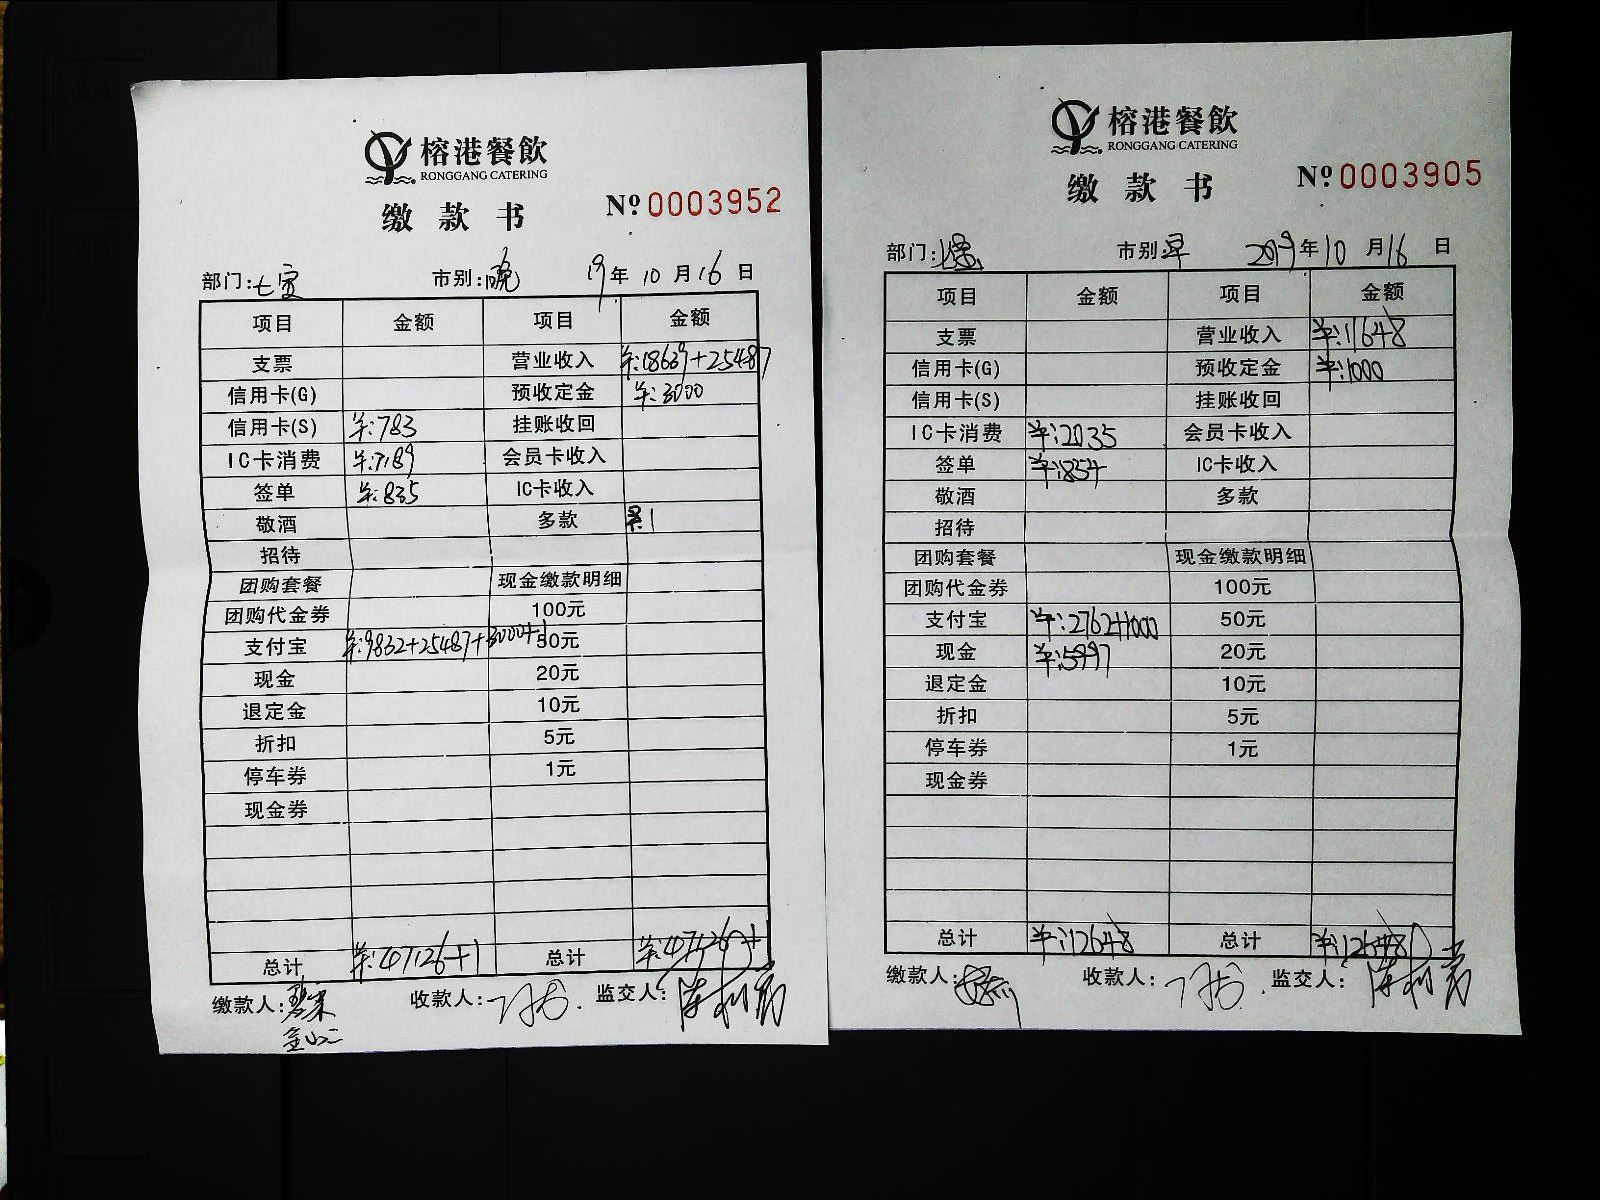 榕港餐飲
RONGGANG CATERING
缴款书
№0003952
部门: 市别:晚 19年10月16日
项目 金额 项目 金额
支票 营业收入 ¥:18639+25487
信用卡(G) 预收定金 ¥:3000
信用卡(S) ¥:783 挂账收回
IC卡消费 ¥:7189 会员卡收入
签单 ¥:835 IC卡收入
敬酒 多款 ¥:1
招待
团购套餐 现金缴款明细
团购代金券 100元
支付宝 ¥:9832+25487+3000+1 50元
现金 20元
退定金 10元
折扣 5元
停车券 1元
现金券
总计 ¥:47126+1 总计 ¥:47126+1
缴款人: 收款人: 监交人:
榕港餐飲
RONGGANG CATERING
缴款书
№0003905
部门: 市别:早 2019年10月16日
项目 金额 项目 金额
支票 营业收入 ¥:11648
信用卡(G) 预收定金 ¥:1000
信用卡(S) 挂账收回
IC卡消费 ¥:2035 会员卡收入
签单 ¥:854 IC卡收入
敬酒 多款
招待
团购套餐 现金缴款明细
团购代金券 100元
支付宝 ¥:2762+1000 50元
现金 ¥:5997 20元
退定金 10元
折扣 5元
停车券 1元
现金券
总计 ¥:12648 总计 ¥:12648
缴款人: 收款人: 监交人: